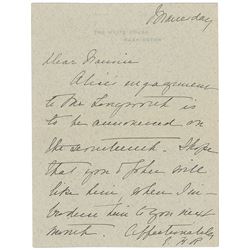 Thursday
THE WHITE HOUSE
WASHINGTON
Dear Fannie
Alice's engagement
to Mr Longworth is
to be announced on
the seventeenth. I hope
that you & John will
like him, when I in-
troduce him to you next
month. Affectionately